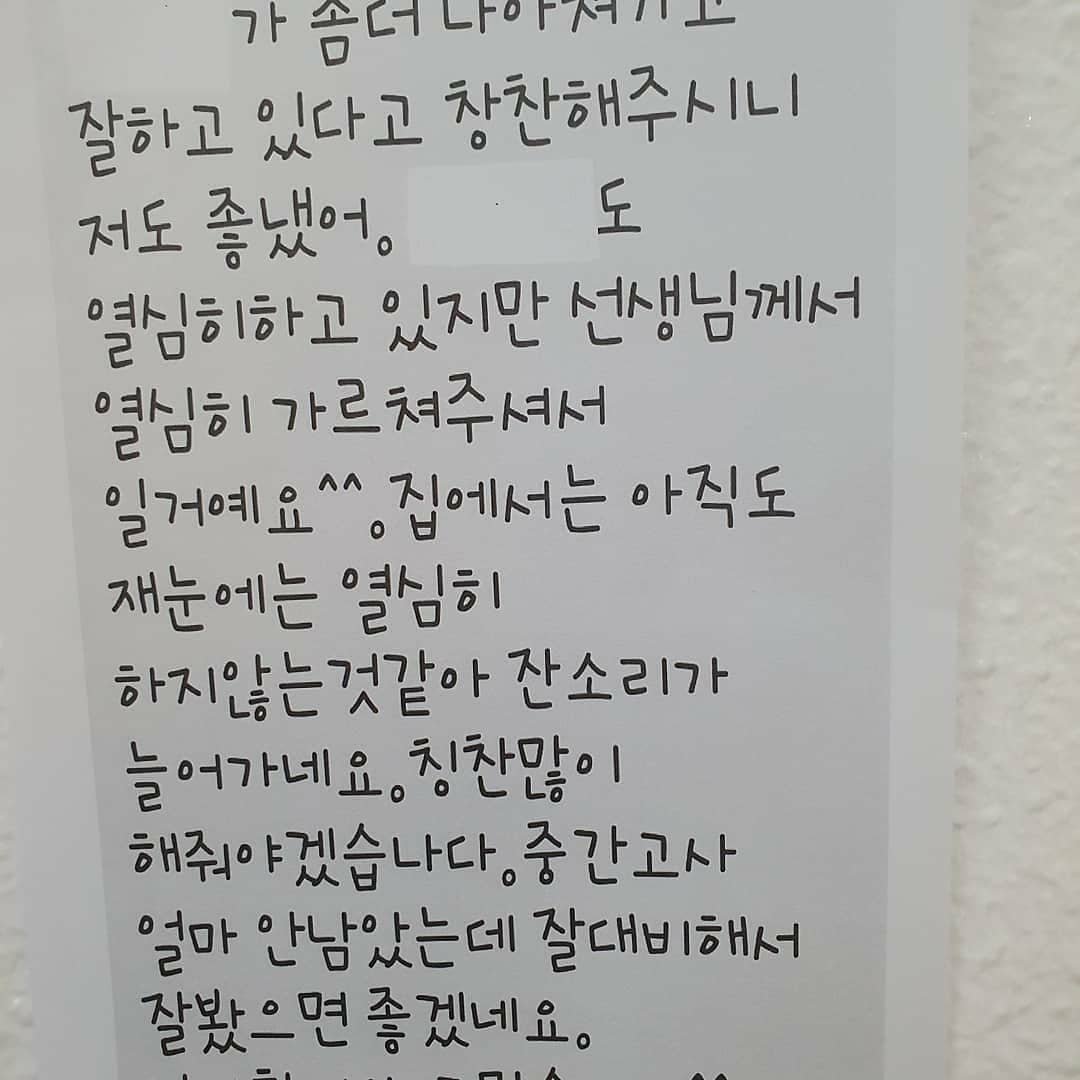 가 좀더
잘하고 있다고 창찬해주시니
저도 좋냈어. 도
열심히하고 있지만 선생님께서
열심히 가르쳐주셔서
일거예요^^.집에서는 아직도
재눈에는 열심히
하지않는것같아 잔소리가
늘어가네요.칭찬많이
해줘야겠습나다.중간고사
얼마 안남았는데 잘대비해서
잘봤으면 좋겠네요.